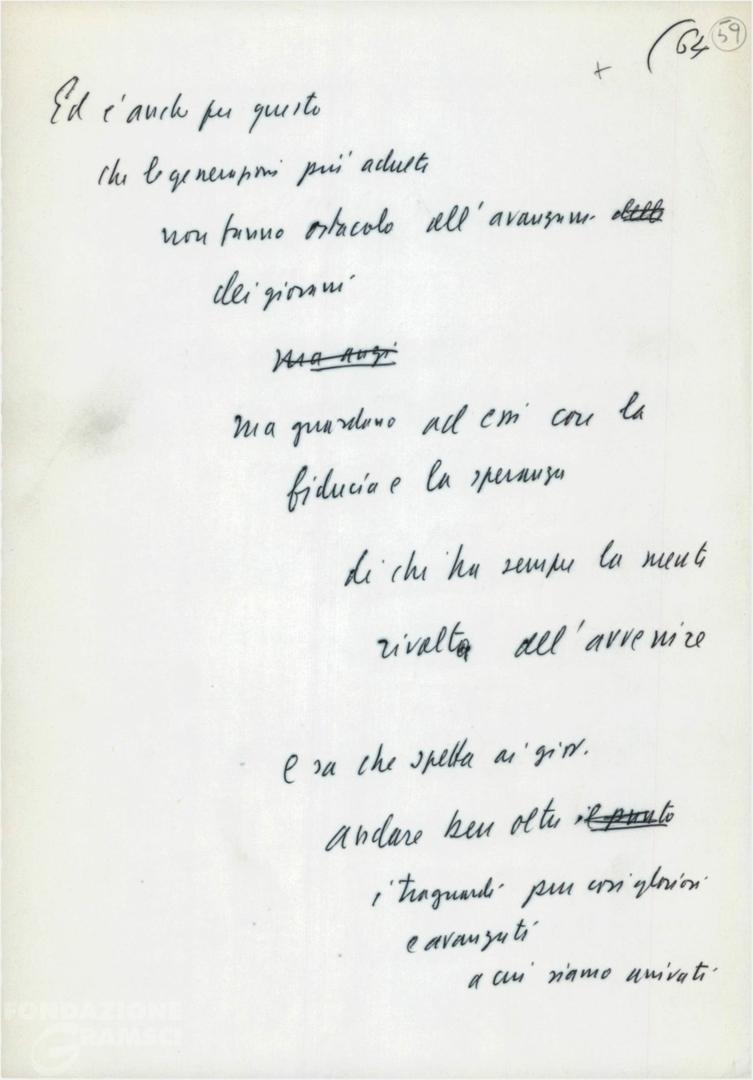 (64 59
+
Ed è anche per questo
che le generazioni più adulte
non fanno ostacolo all'avanzam. delle
dei giovani
ma anzi
ma guardano ad essi con la
fiducia e la speranza
di chi ha sempre la mente
rivolta all'avvenire
e sa che spetta ai giov.
andare ben oltre il punto
i traguardi pur così gloriosi
e avanzati
a cui siamo arrivati
FONDAZIONE
GRAMSCI